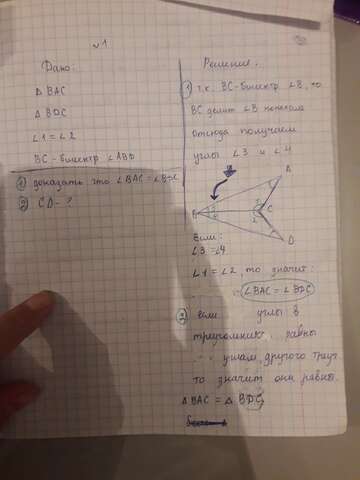 №1
Дано:
△ BAC
△ BDC
∠1=∠2
BC-биссектр ∠ABD
1) доказать что ∠BAC=∠BDC
2) CD-?
Решение:
1) т.к. BC-биссектр ∠B, то
BC делит ∠B пополам
отсюда получаем
углы ∠3 и ∠4
A
B
3
4
1
2
C
D
Если:
∠3=∠4
∠1=∠2, то значит:
∠BAC=∠BDC
2) если углы в
треугольник равны
углам другого треуг
то значит они равны.
△ BAC = △ BDC